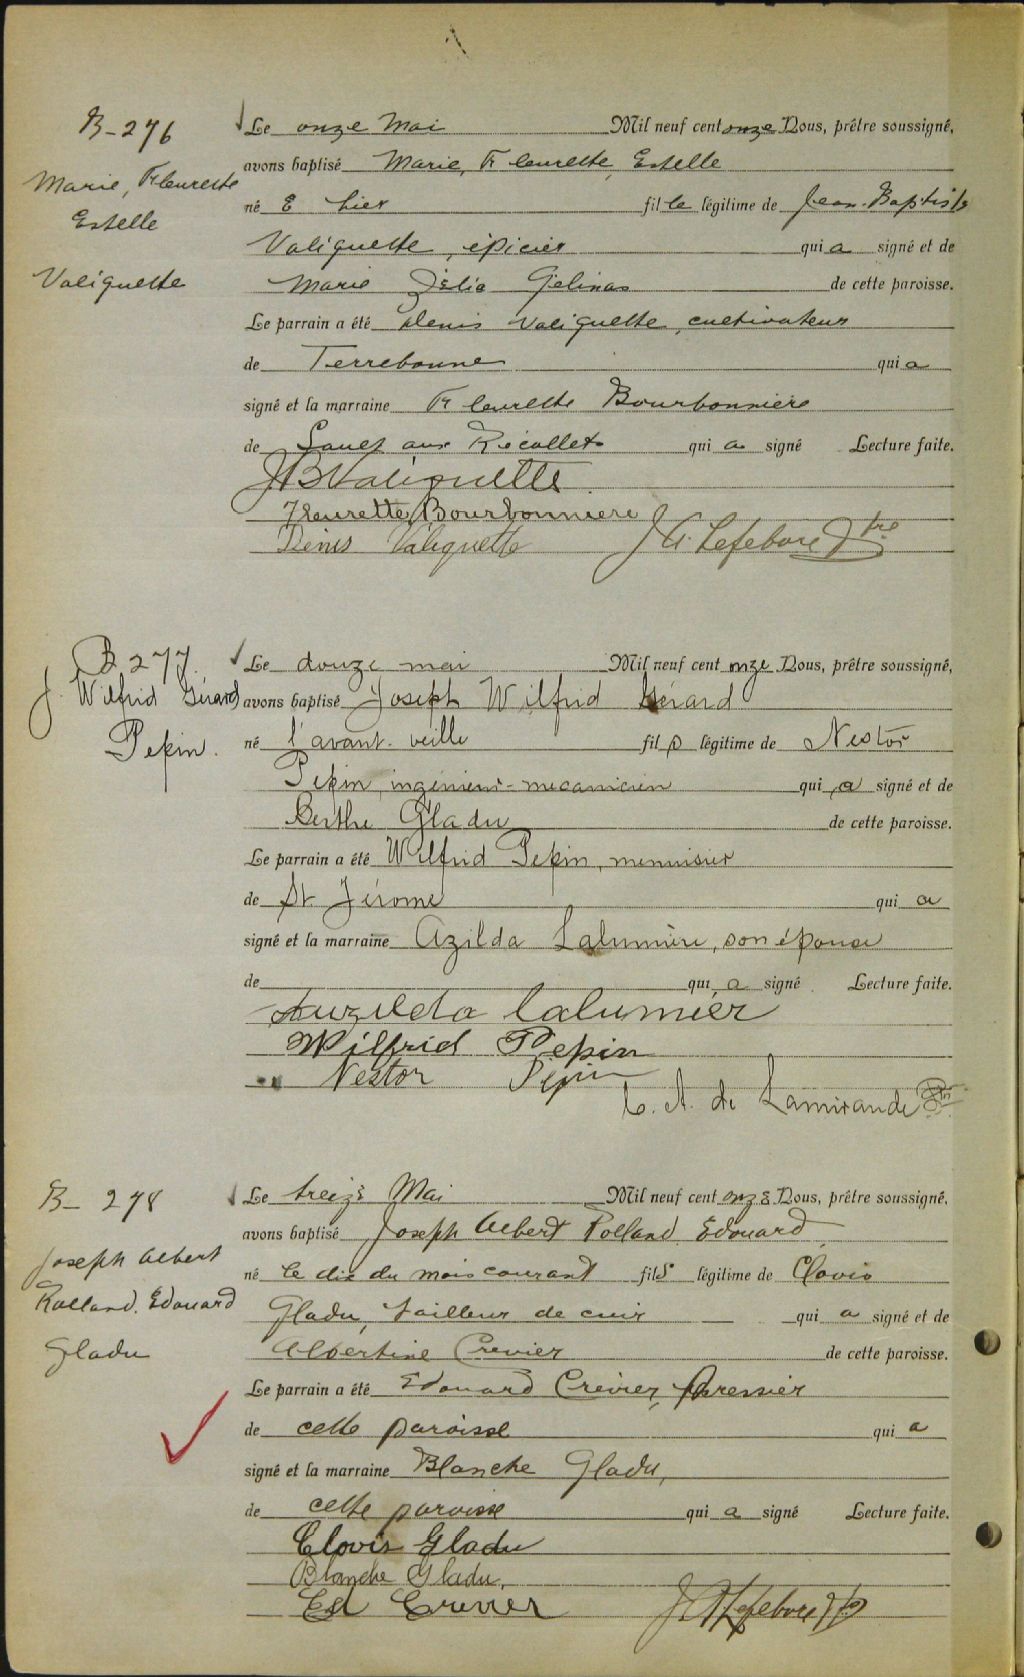 B-276
Marie, Fleurette
Estelle
Valiquette
Le onze Mai Mil neuf cent onze Nous, prêtre soussigné,
avons baptisé Marie, Fleurette, Estelle
né e hier fille légitime de Jean-Baptiste
Valiquette, épicier qui a signé et de
Marie Gelinas de cette paroisse.
Le parrain a été Denis Valiquette, cultivateur
de Terrebonne qui a
signé et la marraine Fleurette Bourbonnière
de Sault aux Récollets qui a signé Lecture faite.
JB Valiquette
Fleurette Bourbonniere
Denis Valiquette J. A. Lefebvre Ptre
B. 277.
J. Wilfrid Gérard
Pepin.
Le douze mai Mil neuf cent onze Nous, prêtre soussigné,
avons baptisé Joseph Wilfrid Gérard
né l'avant-veille fil s légitime de Nestor
Pepin, ingénieur-mecanicien qui a signé et de
Berthe Gladu de cette paroisse.
Le parrain a été Wilfrid Pepin, menuisier
de St Jérome qui a
signé et la marraine Azilda Lalumière, son épouse
de qui a signé Lecture faite.
Auzilda Lalumiér
Wilfrid Pepin
Nestor Pépin
C. A. de Lamirande Ptr
B- 278
Joseph Albert
Rolland. Edouard
Gladu
Le treize Mai Mil neuf cent onze Nous, prêtre soussigné,
avons baptisé Joseph Albert Rolland Edouard
né le dix du mois courant fils légitime de Clovis
Gladu, tailleur de cuir qui a signé et de
Albertine Crevier de cette paroisse.
Le parrain a été Edouard Crevier, Pressier
de cette paroisse qui a
signé et la marraine Blanche Gladu,
de cette paroisse qui a signé Lecture faite.
Clovis Gladu
Blanche Gladu.
Ed Crevier J. A Lefebvre Ptr